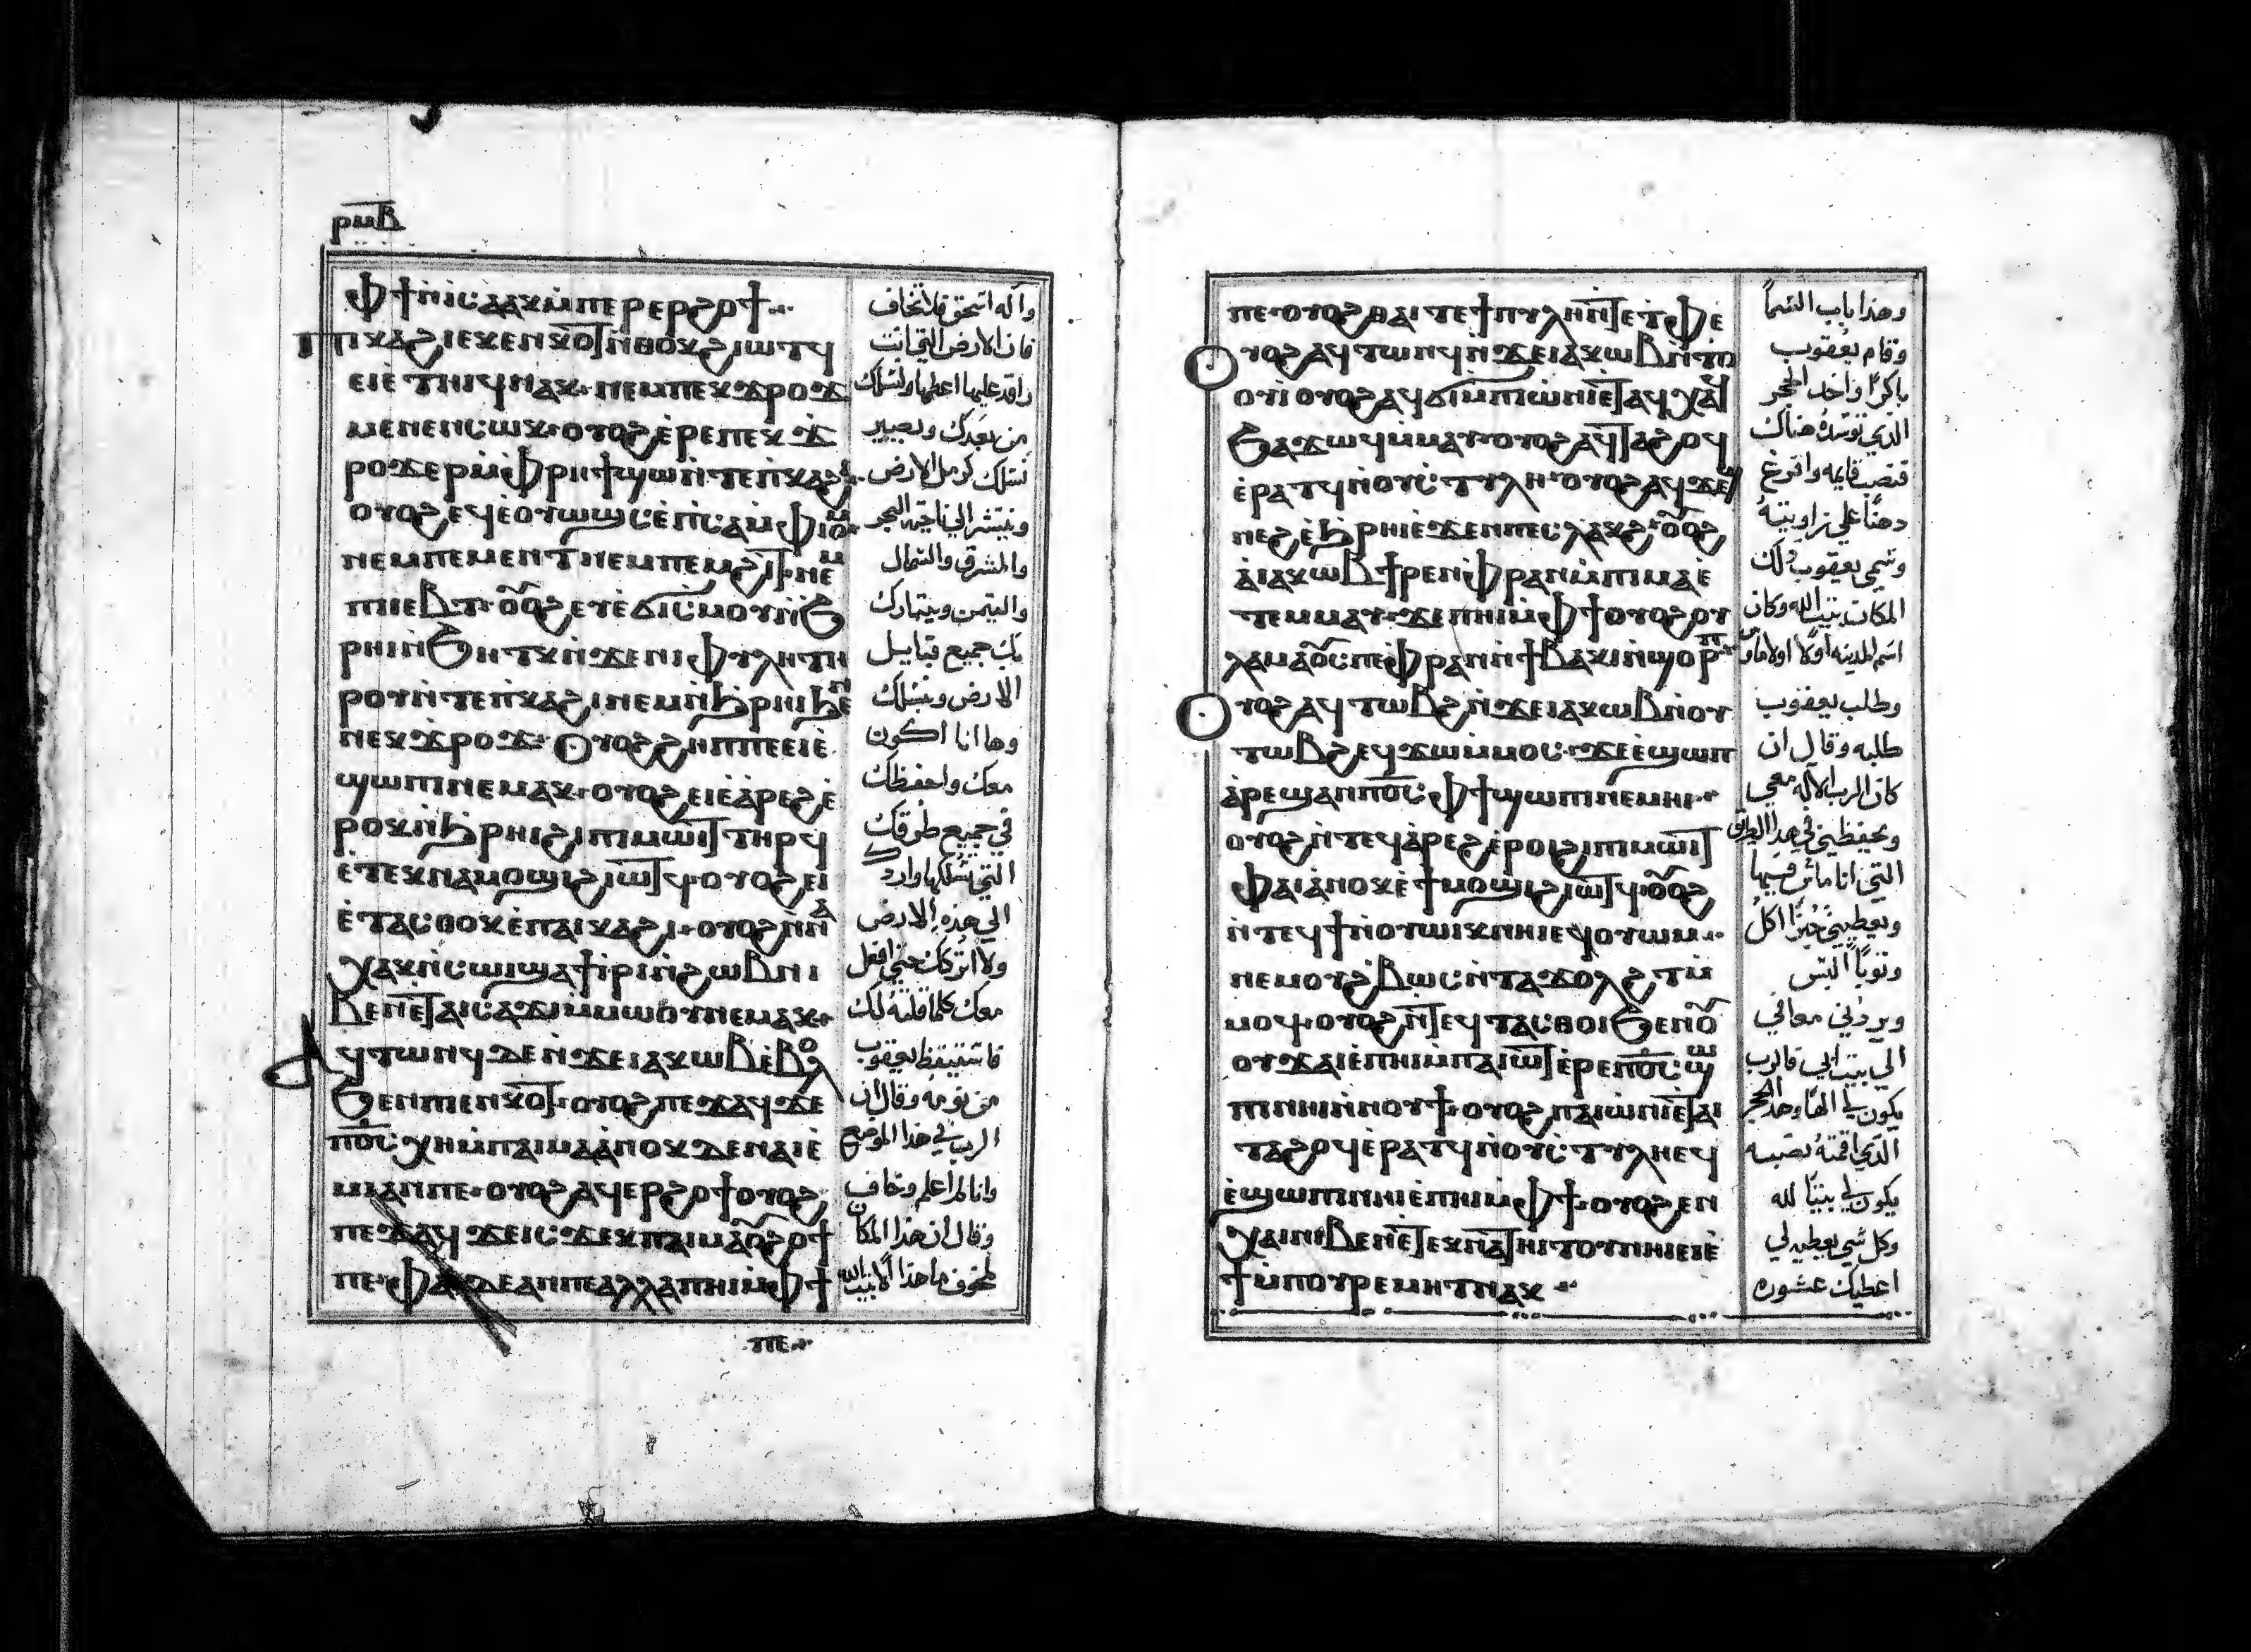 ⲣⲙⲃ
ⲫϯⲛ̀ⲓⲥⲁⲁⲕⲙ̀ⲡⲉⲣⲉⲣϩⲟϯ
ⲡⲓⲕⲁϩⲓⲉⲕⲉⲛⲕⲟⲧⲛ̀ⲑⲟⲕϩⲓⲱⲧϥ
ⲉⲓⲉ̀ⲧⲏⲓϥⲛⲁⲕ·ⲛⲉⲙⲡⲉⲕϫⲣⲟϫ
ⲙⲉⲛⲉⲛⲥⲱⲕ·ⲟⲩⲟϩⲉ̀ⲣⲉⲡⲉⲕϫ
ⲣⲟϫⲉⲣⲙ̀ⲫⲣⲏϯϣⲱⲛ̀ⲧⲉⲡ̀ⲕⲁϩⲓ·
ⲟⲩⲟϩⲉϥⲉ̀ⲟⲩⲱϣⲥⲉ̀ⲡ̀ⲥⲁⲙ̀ⲫⲓⲟⲙ
ⲛⲉⲙⲡⲉⲙⲉⲛⲧⲛⲉⲙⲡⲉⲙϩⲓⲧ·ⲛⲉⲙ
ⲡⲓⲉⲃⲧ·ⲟⲟϩⲉⲩⲉ̀ϭⲓⲥⲙⲟⲩⲛ̀ϧ
ⲣⲏⲓⲛ̀ϧⲏⲧⲕⲛ̀ϫⲉⲛⲓⲫⲩⲗⲏⲧⲏ
ⲣⲟⲩⲛ̀ⲧⲉⲡ̀ⲕⲁϩⲓⲛⲉⲙⲛ̀ϩⲣⲏⲓϧⲉⲛ
ⲡⲉⲕϫⲣⲟϫ·ⲟⲩⲟϩϩⲏⲡⲡⲉⲉⲓⲉ̀
ϣⲱⲡⲓⲛⲉⲙⲁⲕ·ⲟⲩⲟϩⲉⲓⲉ̀ⲁ̀ⲣⲉϩⲉ̀
ⲣⲟⲕⲛ̀ϩⲣⲏⲓϩⲓⲡⲓⲙⲱⲓⲧⲧⲏⲣϥ
ⲉ̀ⲧⲉⲕⲛⲁⲙⲟϣⲓϩⲓⲱⲧϥ·ⲟⲩⲟϩⲉⲓ
ⲉ̀ⲧⲁⲥⲑⲟⲕⲉ̀ⲡⲁⲓⲕⲁϩⲓ·ⲟⲩⲟϩⲛ̀ⲛⲁ
ⲭⲁⲕⲛ̀ⲥⲱⲓϣⲁϯⲓ̀ⲣⲓⲛ̀ϩⲱⲃⲛⲓ
ⲃⲉⲛⲉ̀ⲧⲁⲓⲥⲁϫⲓⲙ̀ⲙⲱⲟⲩⲛⲉⲙⲁⲕ·
ⲁϥⲧⲱⲛϥⲇⲉⲛ̀ϫⲉⲓⲁⲕⲱⲃⲉ̀ⲃⲟⲗ
ϧⲉⲛⲡⲉⲛⲕⲟⲧ·ⲟⲩⲟϩⲡⲉϫⲁϥϫⲉ
ⲡⲟⲥⲭⲏⲙ̀ⲡⲁⲓⲙⲁⲁⲛⲟⲕⲇⲉⲛⲁⲓⲉ̀
ⲙⲓⲁⲛⲡⲉ·ⲟⲩⲟϩⲁϥⲉⲣϩⲟϯⲟⲩⲟϩ
ⲡⲉϫⲁϥϫⲉⲓⲥϫⲉⲕⲡⲁⲓⲙⲁⲟⲓϩⲟϯ
ⲡⲉ·ⲫⲁⲓⲇⲉⲁⲛⲡⲉⲁⲗⲗⲁⲡⲏⲓⲙ̀ⲫϯ
ⲡⲉ
واله اسحق فلا تخاف
فان الارض التي انت
راقد عليها اعطيها ولنسلك
من بعدك ويصير
نسلك كرمل الارض
وينتشر الي ناحية البحر
والمشرق والشمال
والتيمن ويتبارك
بك جميع قبايل
الارض وبنسلك
وها انا اكون
معك واحفظك
في جميع طرقك
التي تسلكها واردك
الي هذه الارض
ولا اتركك حتي افعل
معك كلما قلته لك
فاستيقظ يعقوب
من نومه وقال ان
الرب في هذا الموضع
وانا لم اعلم وخاف
وقال ان هذا المكان
مخوف ما هذا الا بيت الله
ⲡⲉ·ⲟⲩⲟϩⲑⲁⲓⲧⲉϯⲡⲩⲗⲏⲛ̀ⲧⲉⲧⲫⲉ
ⲟⲩⲟϩⲁϥⲧⲱⲛϥⲛ̀ϫⲉⲓⲁⲕⲱⲃⲛ̀ⲧⲟ
ⲟⲩⲓ̀ⲟⲩⲟϩⲁϥϭⲓⲙ̀ⲡⲓⲱ̀ⲛⲓⲉ̀ⲧⲁϥⲭⲁϥ
ϧⲁϫⲱϥⲙ̀ⲙⲁⲩ·ⲟⲩⲟϩⲁϥⲧⲁϩⲟϥ
ⲉ̀ⲣⲁⲧϥⲛ̀ⲟⲩⲥ̀ⲧⲩⲗⲏ·ⲟⲩⲟϩⲁϥϫⲉϣ
ⲛⲉϩⲉ̀ϩⲣⲏⲓⲉ̀ϫⲉⲛⲡⲉⲥⲗⲁⲕϩ·ⲟⲟϩ
ⲁ̀ⲓⲁⲕⲱⲃϯⲣⲉⲛⲫ̀ⲣⲁⲛⲙ̀ⲡⲓⲙⲁⲉ̀
ⲧⲉⲙⲙⲁⲩ·ϫⲉⲡⲏⲓⲙ̀ⲫϯⲟⲩⲟϩⲟⲩ
ⲗⲁⲙⲁⲟⲩⲥⲡⲉⲫ̀ⲣⲁⲛⲛ̀ϯⲃⲁⲕⲓⲛ̀ϣⲟⲣⲡ
ⲟⲩⲟϩⲁϥⲧⲱⲃϩⲛ̀ϫⲉⲓⲁⲕⲱⲃⲛ̀ⲟⲩ
ⲧⲱⲃϩⲉϥϫⲱⲙ̀ⲙⲟⲥ·ϫⲉⲉ̀ϣⲱⲡ
ⲁ̀ⲣⲉϣⲁⲛⲡⲟⲥⲫϯϣⲱⲡⲓⲛⲉⲙⲏⲓ··
ⲟⲩⲟϩⲛ̀ⲧⲉϥⲁ̀ⲣⲉϩⲉ̀ⲣⲟⲓϩⲓⲡⲓⲙⲱⲓⲧ
ⲫⲁⲓⲁ̀ⲛⲟⲕⲉ̀ϯⲙⲟϣⲓϩⲓⲱⲧϥ·ⲟⲟϩ
ⲛ̀ⲧⲉϥϯⲛ̀ⲟⲩⲱⲓⲕⲛⲏⲓⲉϥⲟⲩⲱⲙ··
ⲛⲉⲙⲟⲩϩ̀ⲃⲱⲥⲛ̀ⲧⲁϫⲟⲗϩⲧⲙ̀
ⲙⲟϥ·ⲟⲩⲟϩⲛ̀ⲧⲉϥⲧⲁⲥⲑⲟⲓϧⲉⲛⲟ
ⲟⲩϫⲁⲓⲉ̀ⲡⲏⲓⲙ̀ⲡⲁⲓⲱⲧⲉ̀ⲣⲉⲡⲟⲥϣⲱ
ⲡⲓⲛⲏⲓⲛ̀ⲛⲟⲩϯ·ⲟⲩⲟϩⲡⲁⲓⲱ̀ⲛⲓⲉ̀ⲧⲁⲓ
ⲧⲁϩⲟϥⲉ̀ⲣⲁⲧϥⲛ̀ⲟⲩⲥ̀ⲧⲩⲗⲏⲉϥ
ⲉ̀ϣⲱⲡⲓⲛⲏⲓⲉ̀ⲡⲏⲓⲙ̀ⲫϯ·ⲟⲩⲟϩⲉⲛ
ⲭⲁⲓⲛⲓⲃⲉⲛⲉ̀ⲧⲉⲕⲛⲁⲧⲏⲓⲧⲟⲩⲛⲏⲓⲉⲓⲉ̀
ϯⲙ̀ⲡⲟⲩⲣⲉⲙⲏⲧⲛⲁⲕ
وهذا باب السما
وقام يعقوب
باكرا واخد الحجر
الدي توسده هناك
فنصبه قايمه وافرغ
دهنا علي زاويته
وسمي يعقوب دلك
المكان بيت الله وكان
اسم المدينه اولا اولاماوس
وطلب يعقوب
طلبه وقال ان
كان الرب الاله معي
ويحفظني في هدا الطريق
التي انا ماش فيها
ويعطيني خبزا اكل
وتوبا البس
ويردني معافي
الي بيت ابي فالرب
يكون لي الها وهدا الحجر
الدي اقمته نصبه
يكون لي بيتا لله
وكل شي يعطيه لي
اعطيك عشوره